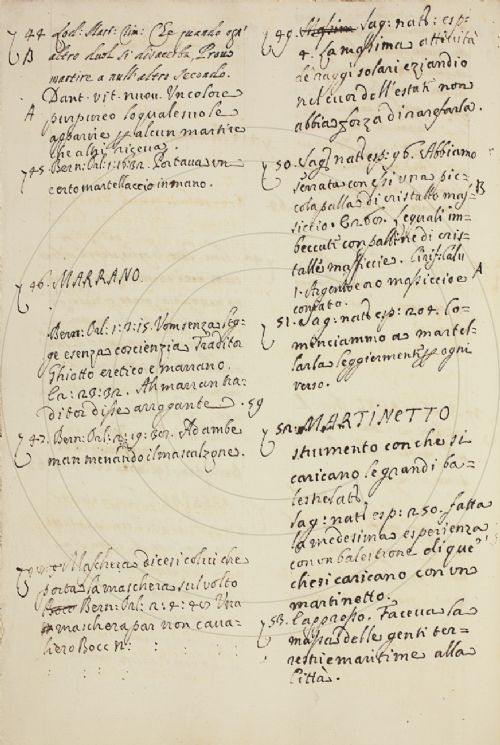 44 Lod: Mart: Rim: Che quando ogn'
B altro duol si disacerba, Prova
martire a null'altro secondo.
Dant. vit. nuou. Un colore
A purpureo lo quale suole
apparire p[er] alcun martire
che altri riceva.
45. Bern: Orl: 1: 16: 32. Portava un
certo martellaccio in mano.
46. MARRANO.
Bern: Orl: 1: 2: 15. Vom senza leg=
ge e senza coscienzia Traditor
Ghiotto eretico e marrano.
la: 28: 32. Ah marran tra=
ditor disse arrogante. 59
47. Bern: Orl: 2: 19: 30. Adambe
man menando il mascalzone.
Maschera dicesi colui che
porta la maschera sul volto
Bern: Orl: 2: 4: 40 Una
maschera par non cava=
liero Bocc n:
49. Sag: nat: esp:
4. La massima attività
de raggi solari eziandio
nel cuor dell'estate non
abbia forza di rarefarla.
50. Sag: nat: esp: 96. Abbiamo
serrata con essi una pic=
cola palla di cristallo mas= B
siccio. le quali im=
beccati con palline di cris=
tallo massiccie.
1. Argento e oro massiccio e A
coniato.
51. Sag: nat: esp: 204. Co=
menciammo a martel=
larla leggiermente p[er] ogni
verso.
52. MARTINETTO
strumento con che si
caricano le grandi ba=
lestre
Sag: nat: esp: 250. fatta
la medesima esperienza
con un balestrone di que'
che si caricano con un
martinetto.
53. l'appresso. Faceva la
massa delle genti ter=
restri e maritime alla
Città.